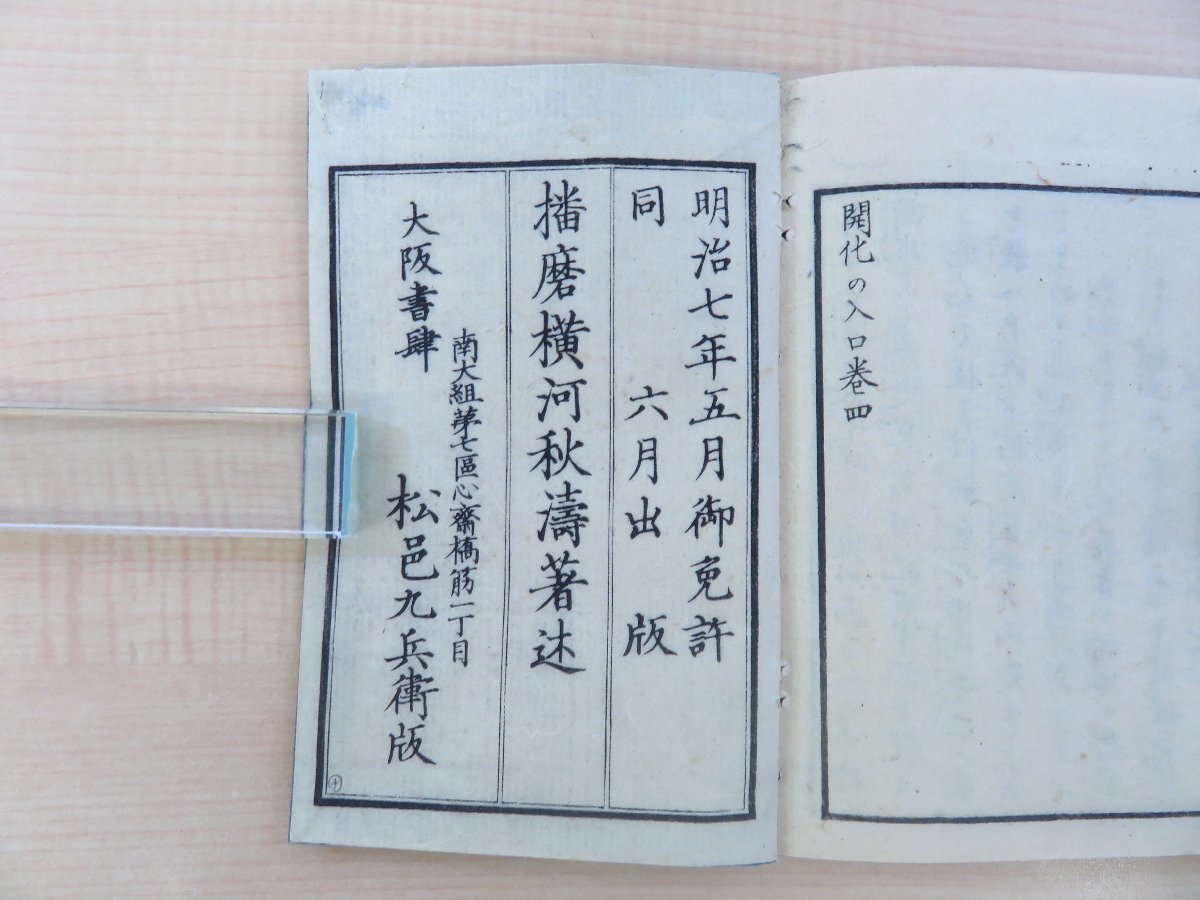 開化の入口巻四
明治七年五月御免許
同 六月出版
播磨横河秋濤著述
南大組第七區心齋橋筋一丁目
大阪書肆 松邑九兵衛版
十